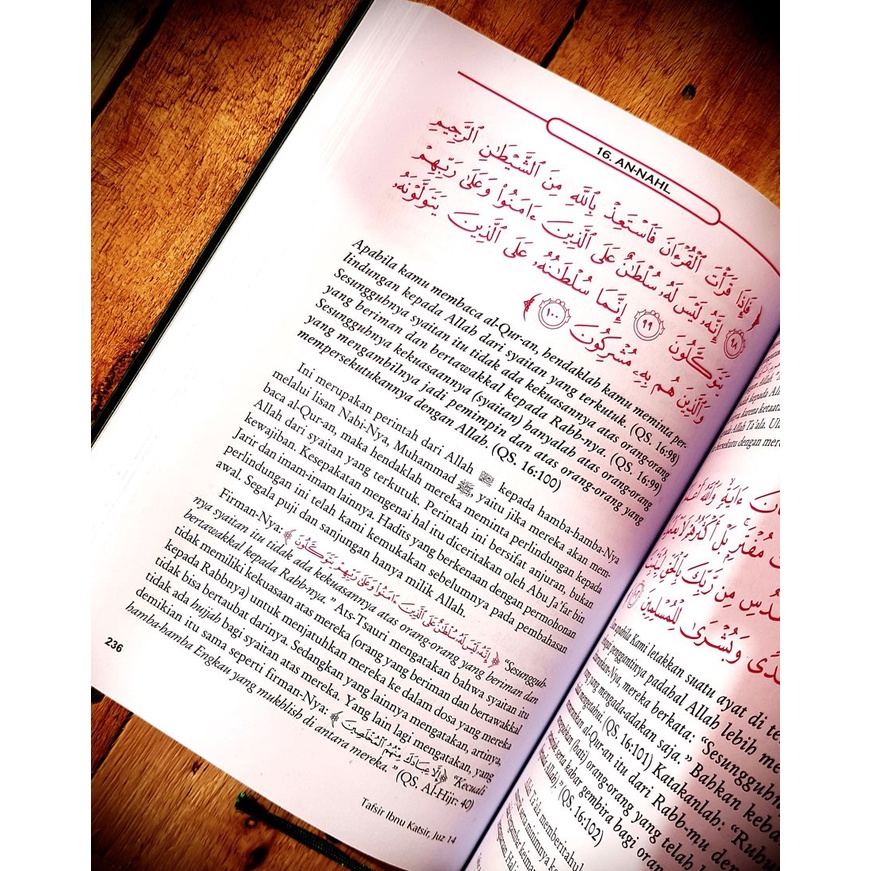 16. AN-NAHL
﴿ فَإِذَا قَرَأْتَ ٱلْقُرْءَانَ فَٱسْتَعِذْ بِٱللَّهِ مِنَ ٱلشَّيْطَٰنِ ٱلرَّجِيمِ
٩٨ إِنَّهُۥ لَيْسَ لَهُۥ سُلْطَٰنٌ عَلَى ٱلَّذِينَ ءَامَنُوا۟ وَعَلَىٰ رَبِّهِمْ
يَتَوَكَّلُونَ ٩٩ إِنَّمَا سُلْطَٰنُهُۥ عَلَى ٱلَّذِينَ يَتَوَلَّوْنَهُۥ
وَٱلَّذِينَ هُم بِهِۦ مُشْرِكُونَ ١٠٠ ﴾
Apabila kamu membaca al-Qur-an, hendaklah kamu meminta per-
lindungan kepada Allah dari syaitan yang terkutuk. (QS. 16:98)
Sesungguhnya syaitan itu tidak ada kekuasannya atas orang-orang
yang beriman dan bertawakkal kepada Rabb-nya. (QS. 16:99)
Sesungguhnya kekuasaannya (syaitan) hanyalah atas orang-orang
yang mengambilnya jadi pemimpin dan atas orang-orang yang
mempersekutukannya dengan Allah. (QS. 16:100)
Ini merupakan perintah dari Allah ﷻ kepada hamba-hamba-Nya
melalui lisan Nabi-Nya, Muhammad ﷺ, yaitu jika mereka akan mem-
baca al-Qur-an, maka hendaklah mereka meminta perlindungan kepada
Allah dari syaitan yang terkutuk. Perintah ini bersifat anjuran, bukan
kewajiban. Kesepakatan mengenai hal itu diceritakan oleh Abu Ja'far bin
Jarir dan imam-imam lainnya. Hadits yang berkenaan dengan permohonan
perlindungan ini telah kami kemukakan sebelumnya pada pembahasan
awal. Segala puji dan sanjungan hanya milik Allah.
Firman-Nya: ﴿ إِنَّهُ لَيْسَ لَهُ سُلْطَانٌ عَلَى الَّذِينَ آمَنُوا وَعَلَى رَبِّهِمْ يَتَوَكَّلُونَ ﴾ "Sesungguh-
nya syaitan itu tidak ada kekuasannya atas orang-orang yang beriman dan
bertawakkal kepada Rabbnya." Ats-Tsauri mengatakan bahwa syaitan itu
tidak memiliki kekuasaan atas mereka (orang yang beriman dan bertawakkal
kepada Rabbnya) untuk menjatuhkan mereka ke dalam dosa yang mereka
tidak bisa bertaubat darinya. Sedangkan yang lainnya mengatakan, artinya,
tidak ada hujjah bagi syaitan atas mereka. Yang lain lagi mengatakan, yang
demikian itu sama seperti firman-Nya: ﴿ إِلَّا عِبَادَكَ مِنْهُمُ الْمُخْلَصِينَ ﴾ "Kecuali
hamba-hamba Engkau yang mukhlish di antara mereka." (QS. Al-Hijr: 40)
236
Tafsir Ibnu Katsir, Juz 14
apabila Kami letakkan suatu ayat di
penggantinya padahal Allah lebih
-Nya, mereka berkata: "Sesungguhn
yang mengada-adakan saja." Bahkan
(QS. 16:101) Katakanlah: "Ruhu
al-Qur-an itu dari Rabb-mu dengan
(hati) orang-orang yang telah
serta kabar gembira bagi
(QS. 16:102)